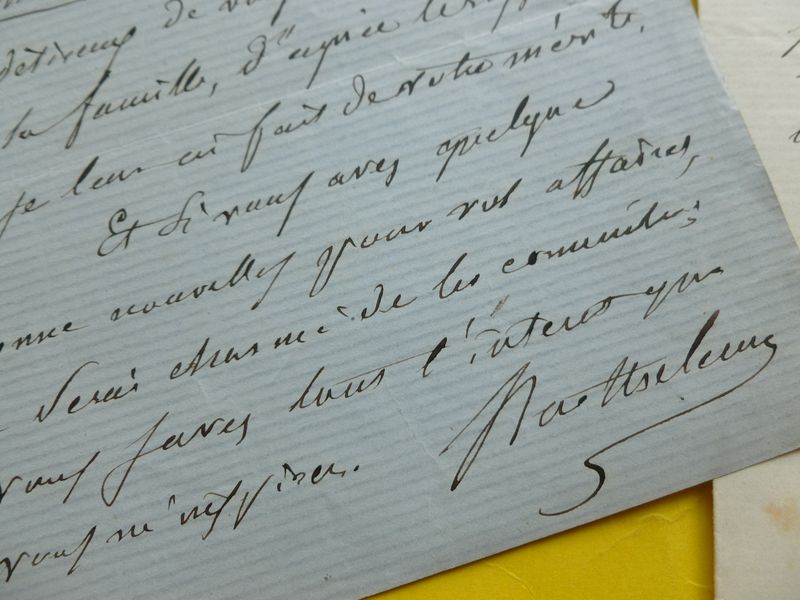 désireux de
la famille, d'après le
je leur ai fait de votre mérite.
Et si vous aves quelque
bonne nouvelles pour vos affaires,
serais charmé de les connaître;
vous saves tous l'intérêt que
vous m'inspirer.